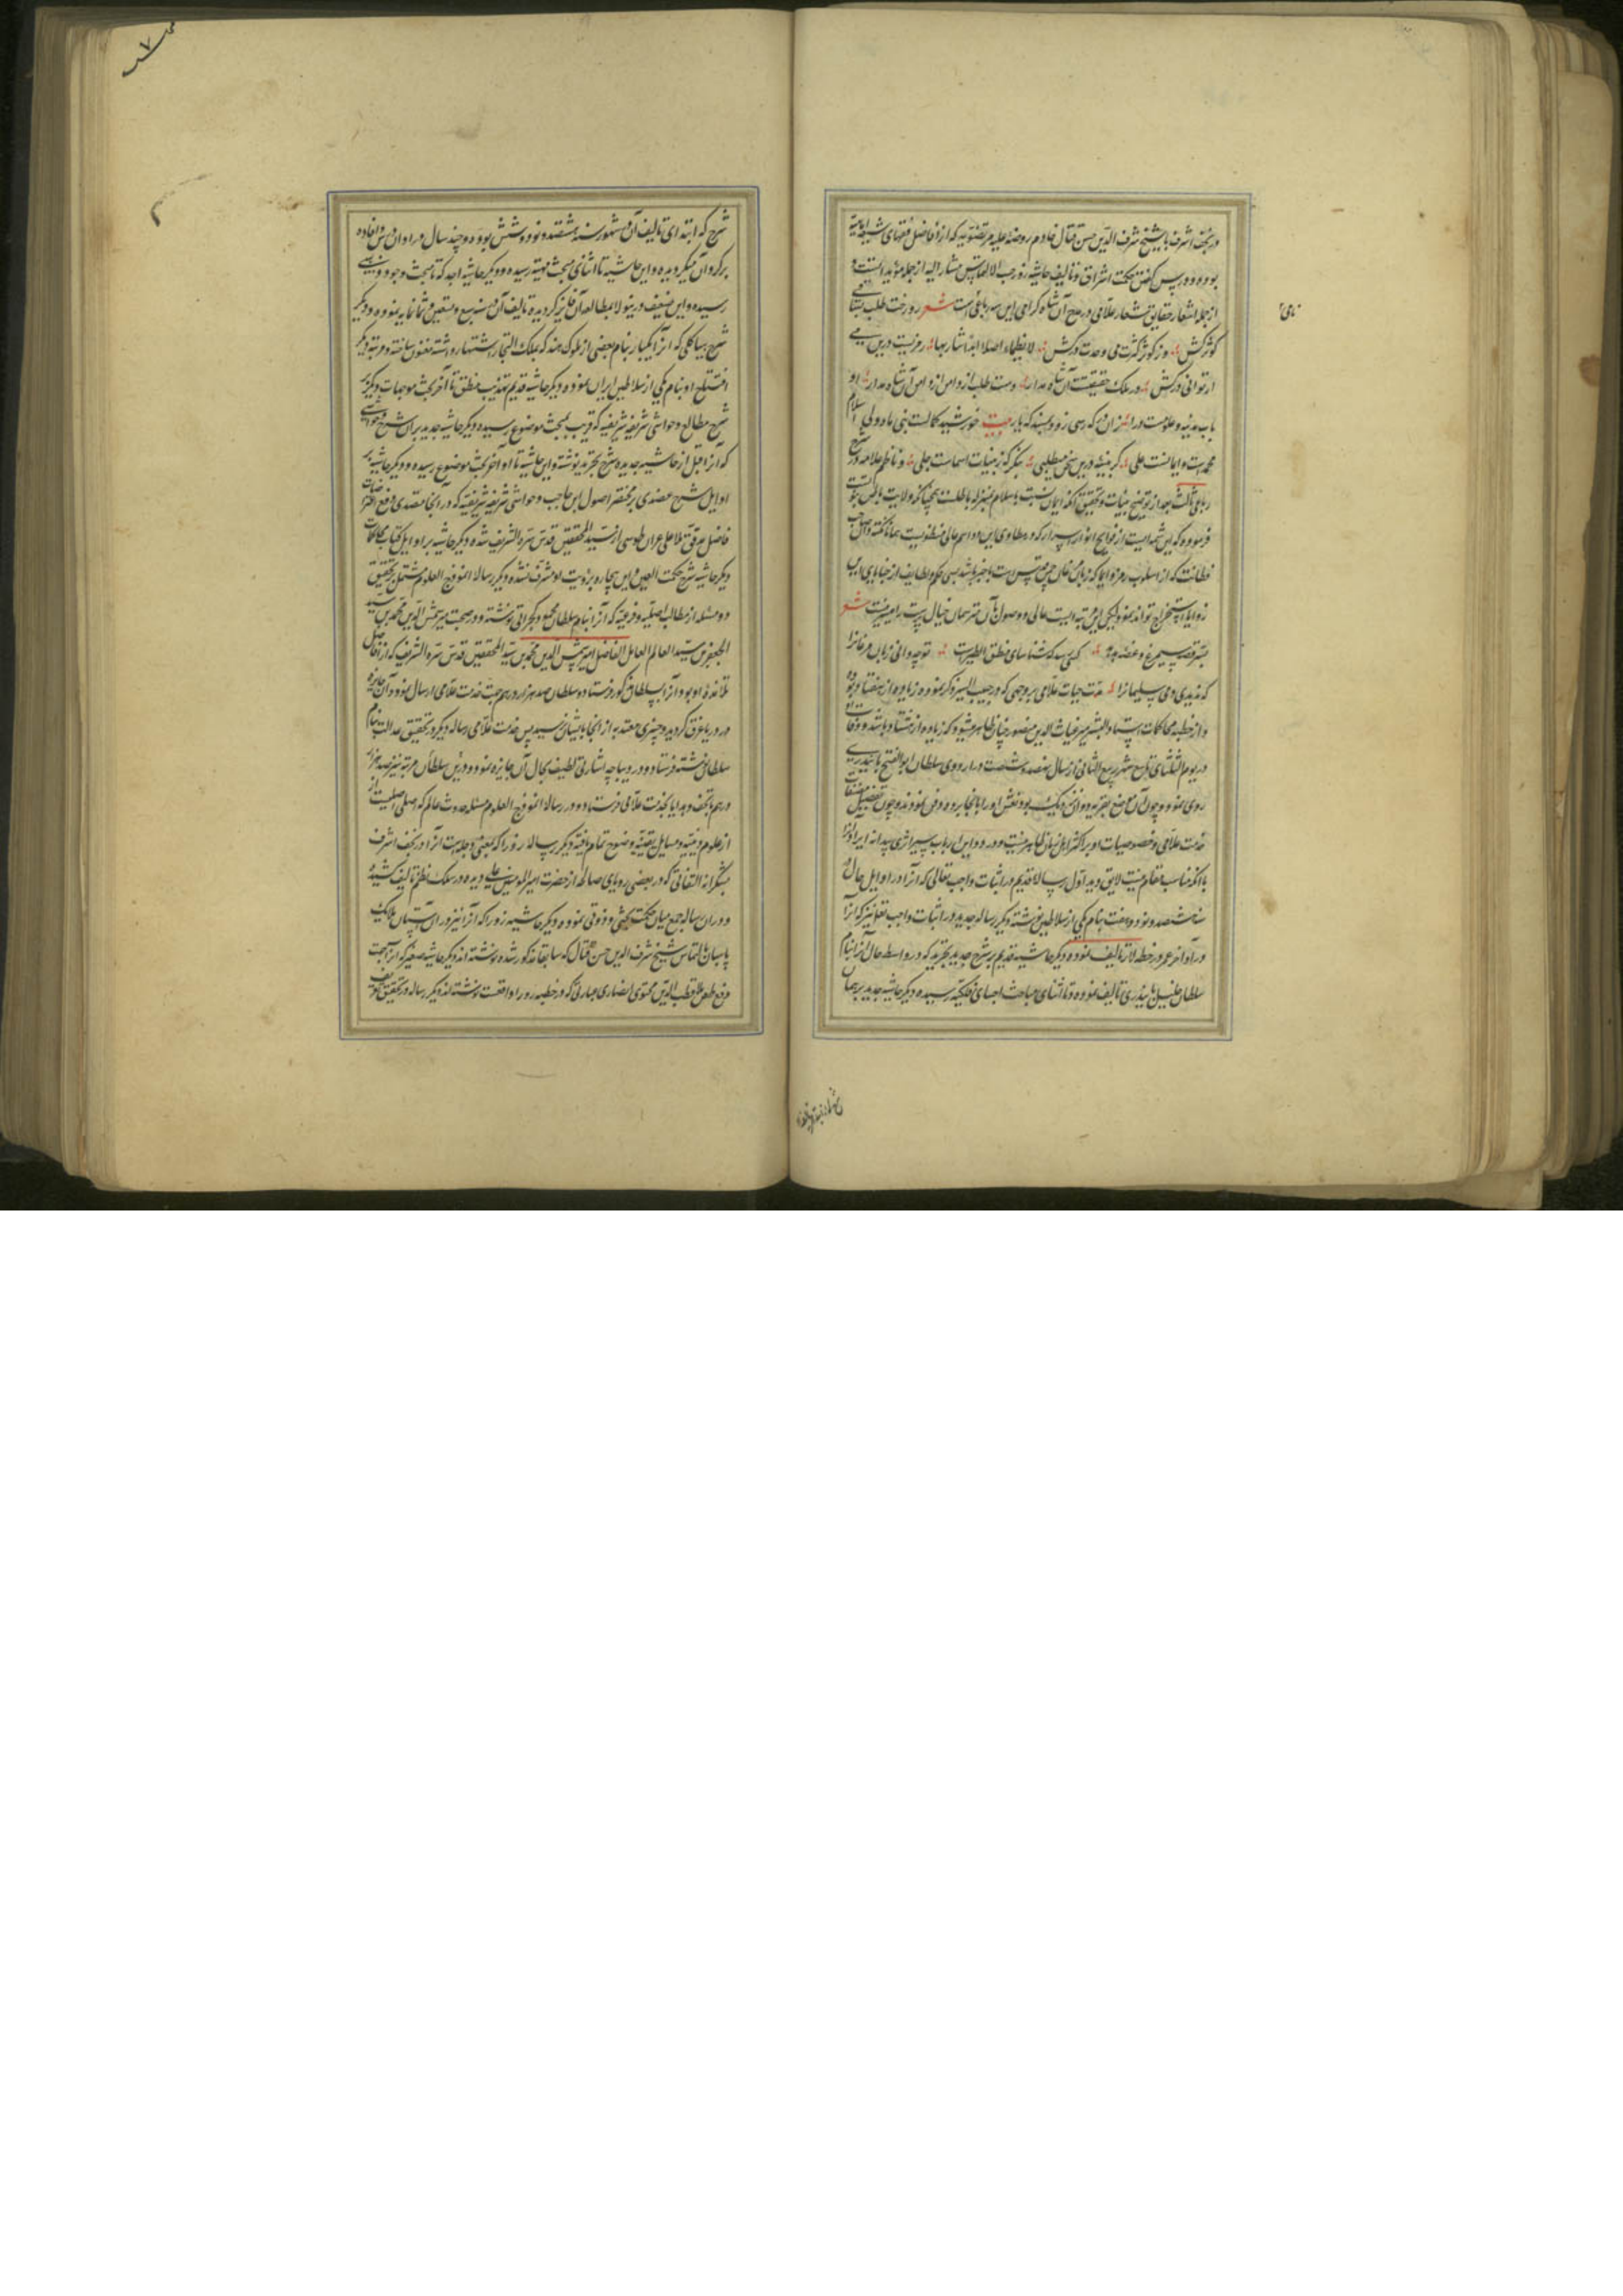 در نجف اشرف با شیخ شرف الدین حسن فتال خادم روضهٔ علیه مرتضویه که از افاضل فقهای شیعه امامیه
بوده و در پس گفتن حکمت اشراق و تالیف حاشیه زورا حسب الالتماس مشار الیه از جمله مؤیدات است و
از جمله اشعار حقایق شعار علامی در مدح آن شاه کرامی این سه رباعی است شعر رو رخت طلب
کوثر کش وز کوثر کثرت می وحدت درکش لا نظماء اصلا ابدا شاربها رمزیست درین می
ار توانی درکش در ملک حقیقت آن شاه مدار دست طلب از دامن آن شاه مدار او
باب مدینه علومست در آ زان در که رسی زود بمیند که یار بیت خورشید کمالست نبی ماه ولی اسلام
محمدست و ایمانست علی کر بینهٔ درین سخن میطلبی بنکر که ز بینات اسماست جلی و ناظم علامه در شرح
رباعی ثالث بعد از توضیح بینات و تحقیق آنکه ایمان نسبت باسلام بمنزله باطنست همچنانکه ولایت باطن نبوتست
فرموده که این شمه ایست از فوایح انوار اسرار که در مطاوی این دو اسم عالی منطویست همانا نکته دان صاحب
فطانت که از اسلوب رمز و ایما که زبان مرغان چمن قدس است باخبر باشد بسی حکم و لطایف از خبایای این
زوایا استخراج تواند نمود لیکن این مرتبه ایست عالی و وصول بآن متوهمان خیال پرست را میسر نیست شعر
سر قصه سیمرغ و غصه هدهد کسی رسد که شناسای منطق الطیرست تو چه دانی زبان مرغانرا
که ندیدی دمی سلیمانرا مدت حیات علامی بر وجهی که در حبیب السیر ذکر نموده زیاده از هفتاد بوده
و از خطبه محاکمات استاد البشر میر غیاث الدین منصور چنان ظاهر میشود که زیاده از هشتاد باشد و وفات
در یوم الثلثای تاسع شهر ربیع الثانی از سال نهصد و هشت در اردوی سلطان ابو الفتح بایندری
روی نمود و چون آن موضع بقریه دوان نزدیک بود نعش او را بآنجا برده دفن نمودند و چون تفصیل مصنفات
خدمت علامی و خصوصیات او بر اکثر اهل زمان ظاهر نیست و درین باب سیر اثری پیدا نه ایراد آنرا
با آنکه مناسب مقام نیست لایق دید اول رساله قدیم در اثبات واجب تعالی که آنرا در اوایل حال
سنه هشتصد و نود و هفت بنام یکی از سلاطین نوشته دیکر رساله جدید در اثبات واجب تعالی نیز که آنرا
در اواخر عمر در خطه لار تالیف نموده دیکر حاشیه قدیم بر شرح جدید تجرید که در اواسط حال آنرا بنام
سلطان خلیل بایندری تالیف نموده و تا اثنای مباحث اجسام فلکیه رسیده دیکر حاشیه جدید بر همان
شرح که ابتدای تالیف آن در شهور سنه هشتصد و نود و شش بوده و چند سال در اوان درس و افاده
بر کرد آن میکردیده و این حاشیه تا اثنای مبحث مهیه رسیده و دیکر حاشیه اجد که تا مبحث وجود ذهنی
رسیده و این ضعیف درینولا بمطالعه آن فایز کردیده تالیف آن در سنه سبع و تسعین و ثمانمایه نموده و دیکر
شرح هیاکل که آنرا یکبار بنام بعضی از ملوک هند که بملک التجار اشتهار داشته معنون ساخته و مرتبه دیکر
افتتاح او بنام یکی از سلاطین ایران نموده و دیکر حاشیه قدیم تهذیب منطق تا آخر بحث موجهات دیکر بر
شرح مطالع و حواشی شریفه شریفیه که قریب بمبحث موضوع رسیده دیکر حاشیه جدید بر آن شرح و حواشی
که آنرا قبل از حاشیه جدیده شرح تجرید نوشته و این حاشیه تا اواخر بحث موضوع رسیده و دیکر حاشیه بر
اوایل شرح عضدی بر مختصر اصول ابن حاجب و حواشی شریفه شریفیه که در آنجا متصدی دفع اعتراضات
فاضل مدقق ملا علی عران طوسی از سید المحققین قدس سره الشریف شده دیکر حاشیه بر اوایل کتاب محاکمات
دیکر حاشیه شرح حکمت العین و این بیچاره برؤیت او مشرف نشده دیکر رسالهٔ انموذج العلوم مشتمل بر تحقیق
ده مسئله از مطالب اصلیه و فرعیه که آنرا بنام سلطان محمود کجراتی نوشته و در صحبت میر شمس الدین محمد بن سید
الجعفر بن سید العالم العامل الفاضل امیر شمس الدین محمد بن سید المحققین قدس سره الشریف که از افاضل
تلامذهٔ او بود آنرا بسلطان مذکور فرستاده و سلطان صد هزار درهم جهت خدمت علامی ارسال نموده و آن جایزه
در دریا غرق کردید و چیزی معتد به از آنجا بایشان نرسید پس خدمت علامی رساله دیکر در تحقیق عدالت بنام
سلطان نوشته فرستاد و در دیباچه اشارتی لطیف بحال آن جایزه نموده و درین مرتبه سلطان نیز صد هزار
درهم با تحف و هدایا بخدمت علامی فرستاد و در رسالهٔ انموذج العلوم مسئله حدوث عالم که اصلی اصلیست
از علوم دینیه و مسایل یقینیه وضوح تمام یافته دیکر رسالهٔ زورا که بمعنی دجله است آنرا در نجف اشرف
بشکرانهٔ التفاتی که در بعضی رویای صالحه از حضرت امیر المومنین علی دیده در سلک نظم تالیف کشیده
و در ان رساله جمع میان حکمت بحثی و ذوقی نموده و دیکر حاشیه زورا که آنرا نیز در ان آستان ملایک
پاسبان بالتماس شیخ شرف الدین حسن فتال که سابقا مذکور شده نوشته‌اند دیکر حاشیه صغیر که از جهت
دفع طعن ملا قطب الدین محیوی انصاری بر عبارتی که در خطبه زورا واقعست نوشته‌اند دیکر رساله در تحقیق تعریف